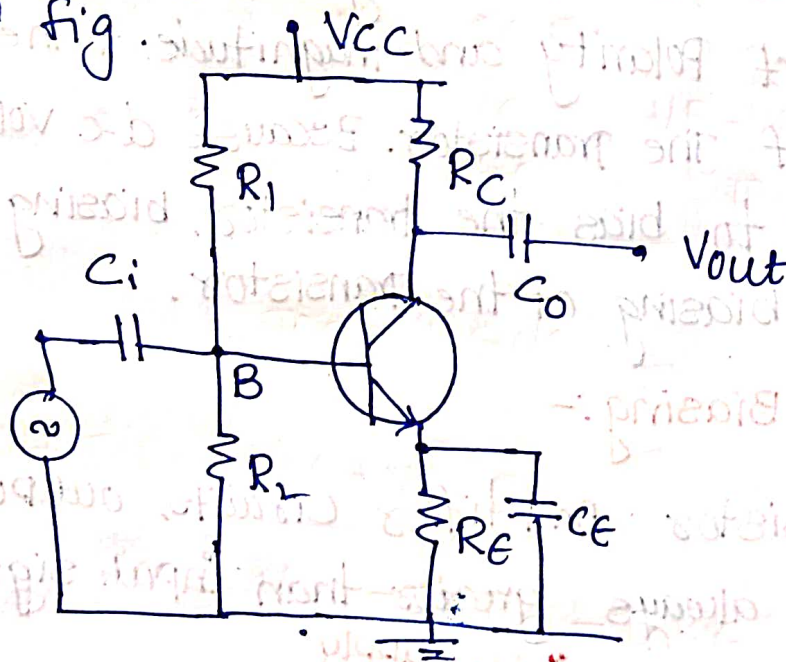 fig.
VCC
R1
RC
Ci
Co
Vout
B
R2
RE
CE